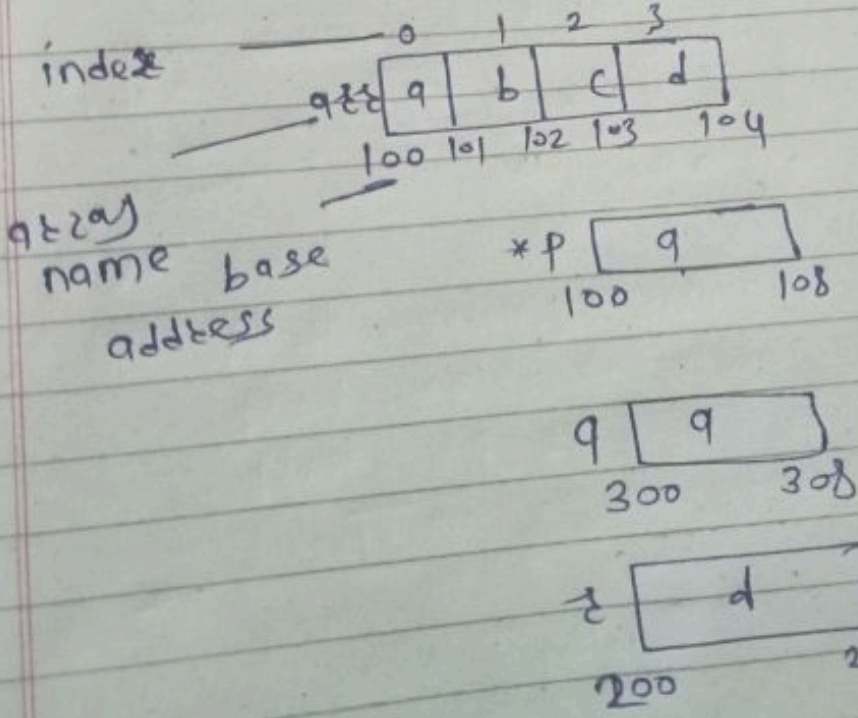 index 0 1 2 3
arr a b c d
100 101 102 103 104
array
name base
address
*p a
100 108
q a
300 308
r d
200 2